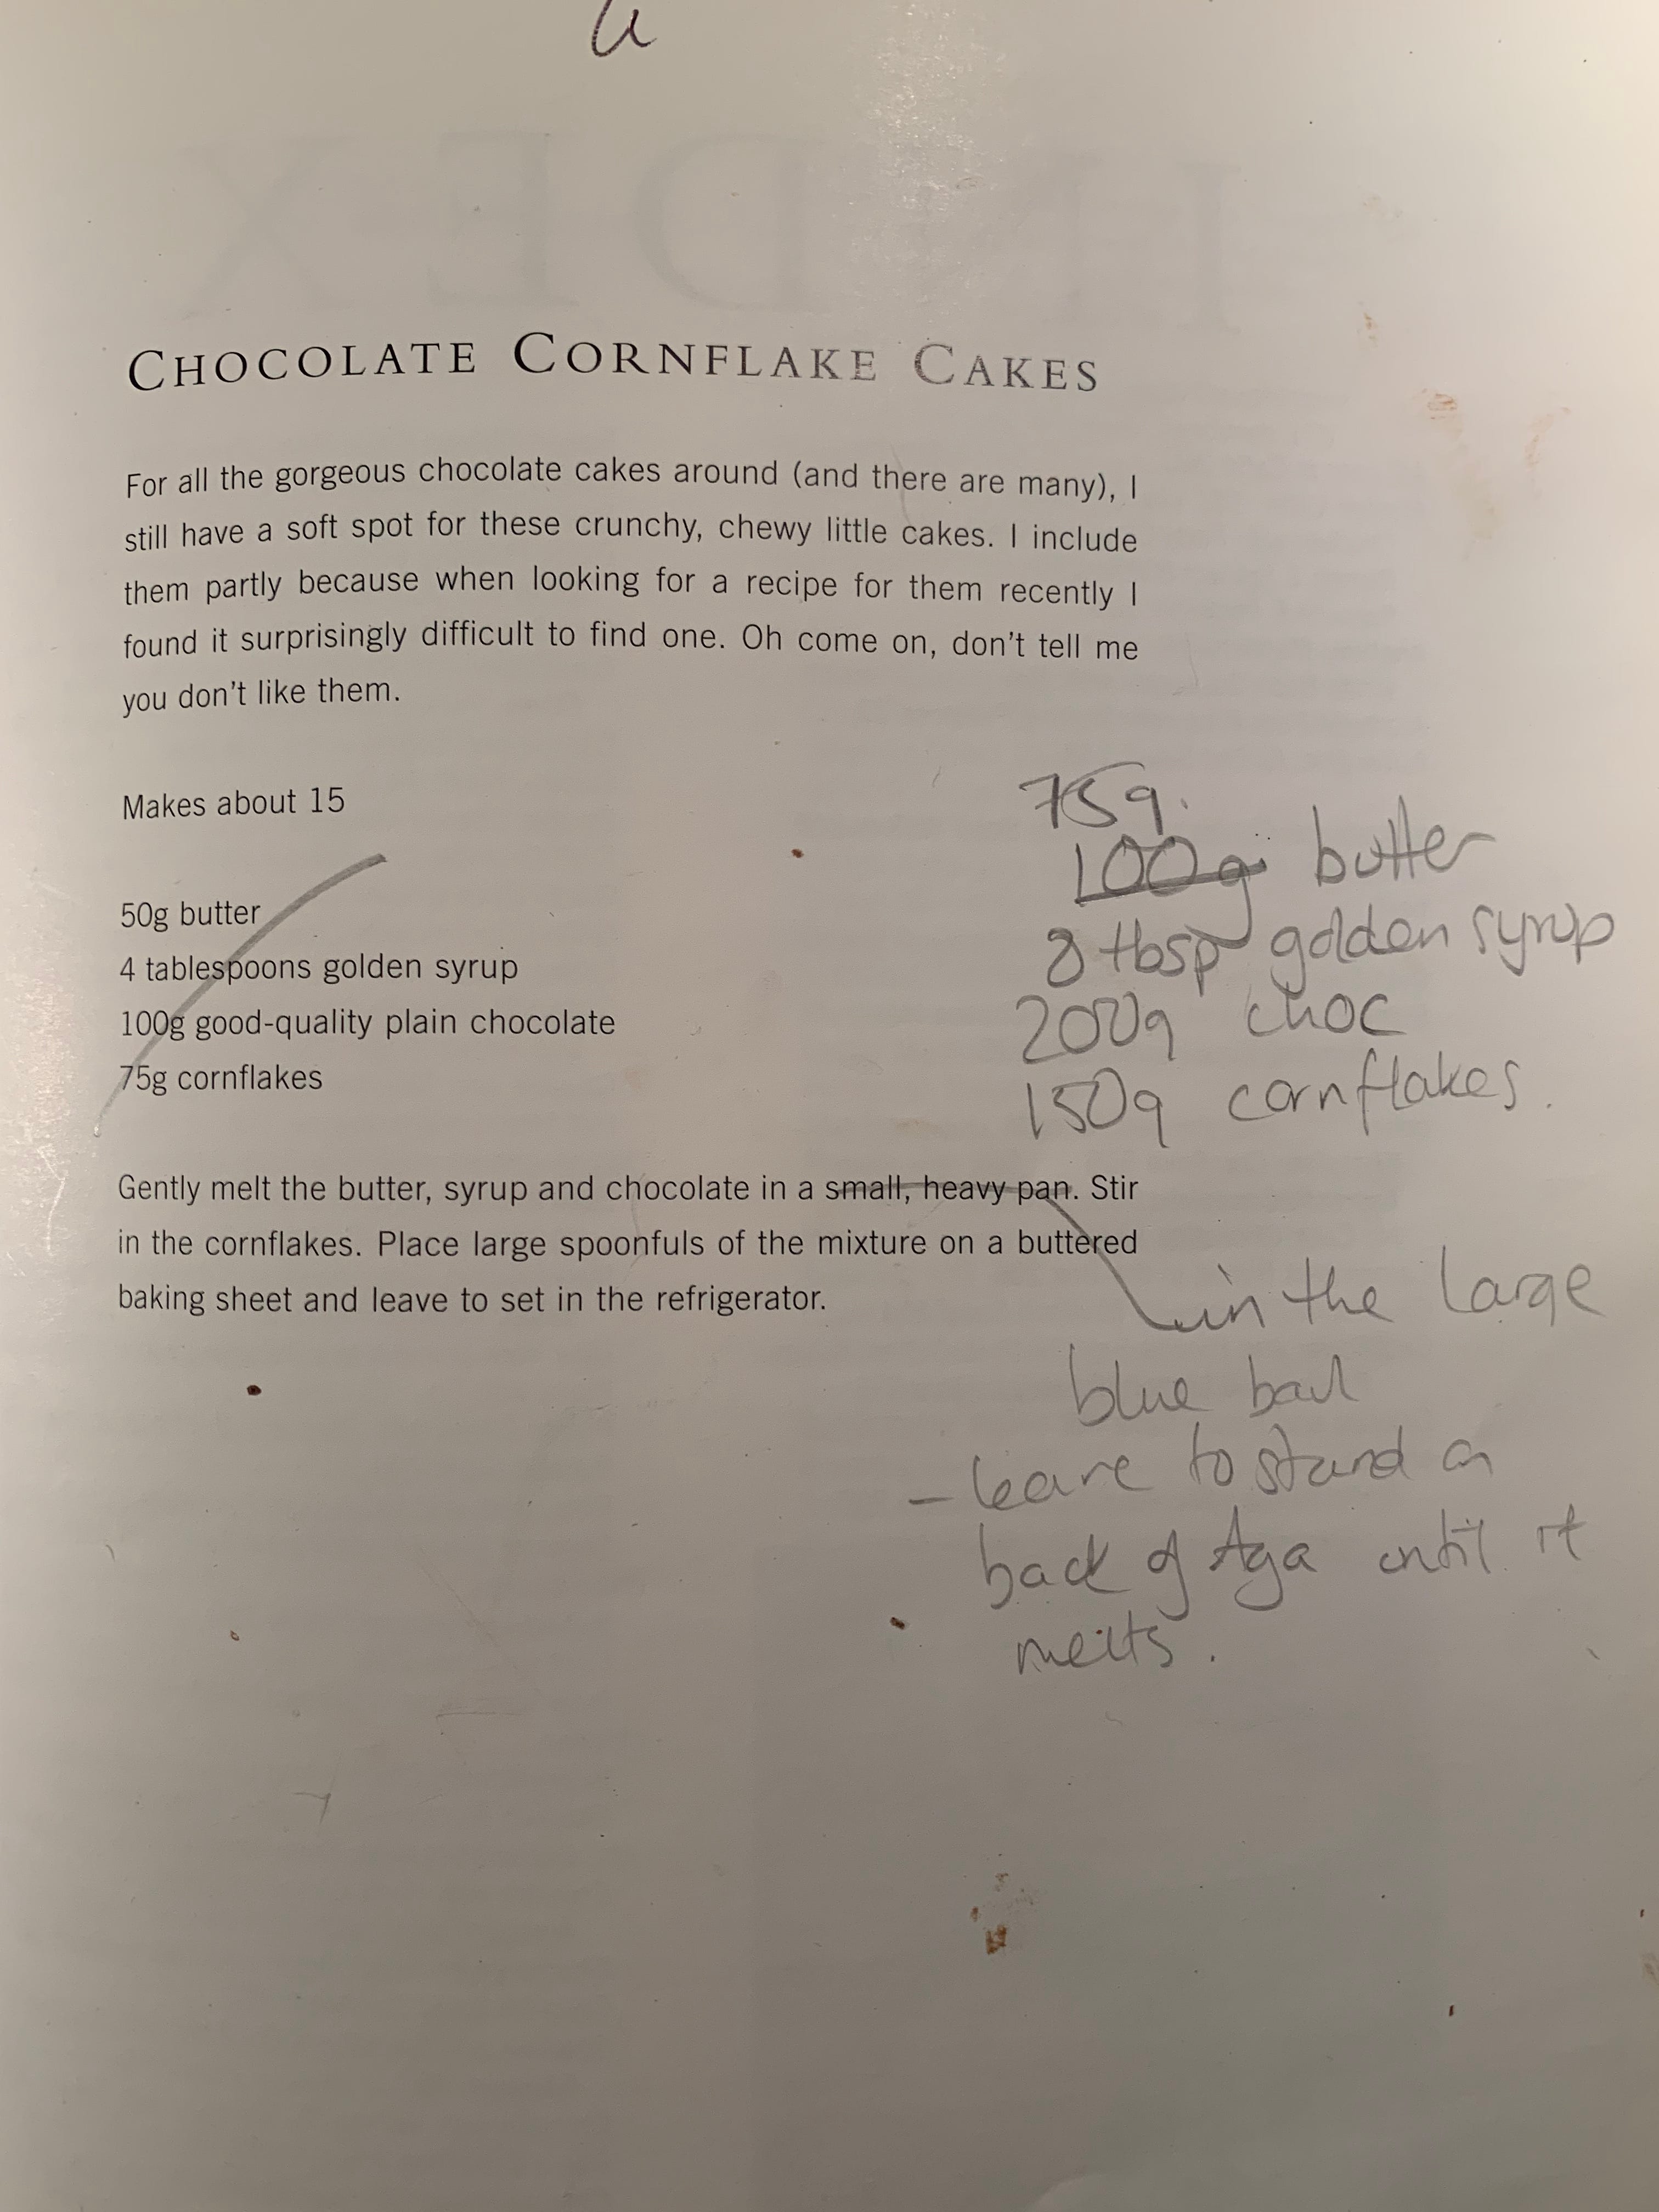 CHOCOLATE CORNFLAKE CAKES
For all the gorgeous chocolate cakes around (and there are many), I
still have a soft spot for these crunchy, chewy little cakes. I include
them partly because when looking for a recipe for them recently I
found it surprisingly difficult to find one. Oh come on, don't tell me
you don't like them.
Makes about 15
50g butter
4 tablespoons golden syrup
100g good-quality plain chocolate
75g cornflakes
75g.
100g butter
8 tbsp golden syrup
200g choc
150g cornflakes.
Gently melt the butter, syrup and chocolate in a small, heavy pan. Stir
in the cornflakes. Place large spoonfuls of the mixture on a buttered
baking sheet and leave to set in the refrigerator.
in the large
blue bowl
- leave to stand on
back of Aga until it
melts.